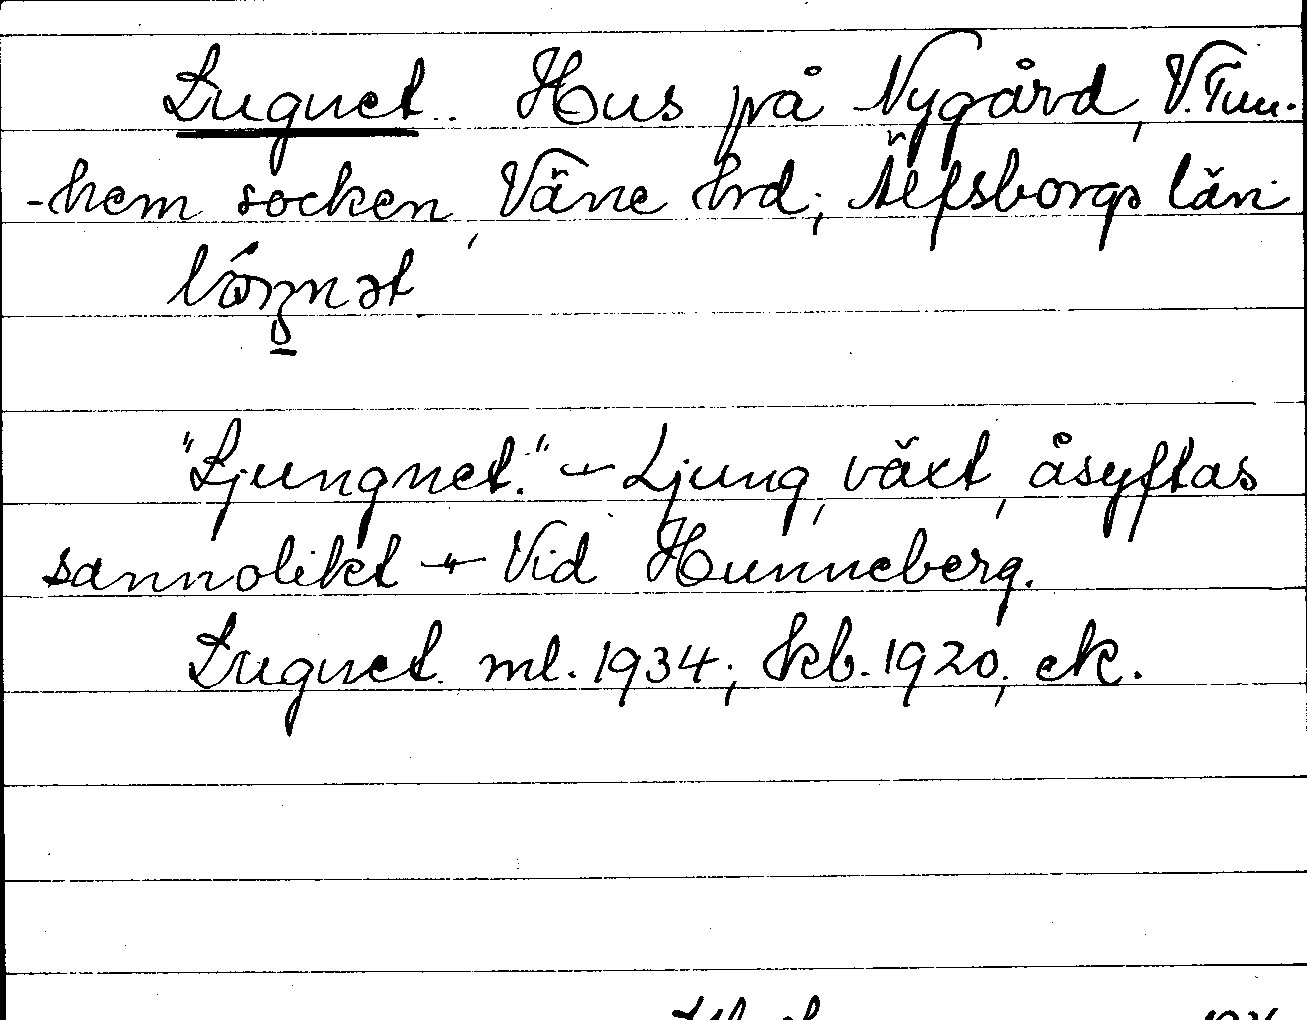 Lugnet. Hus på Nygård, V. Tun-
-hem socken, Väne hrd; Älfsborgs län
"Ljungnet." - Ljung, växt, åsyftas
sannolikt - Vid Hunneberg.
Lugnet ml. 1934; kb. 1920; ek.